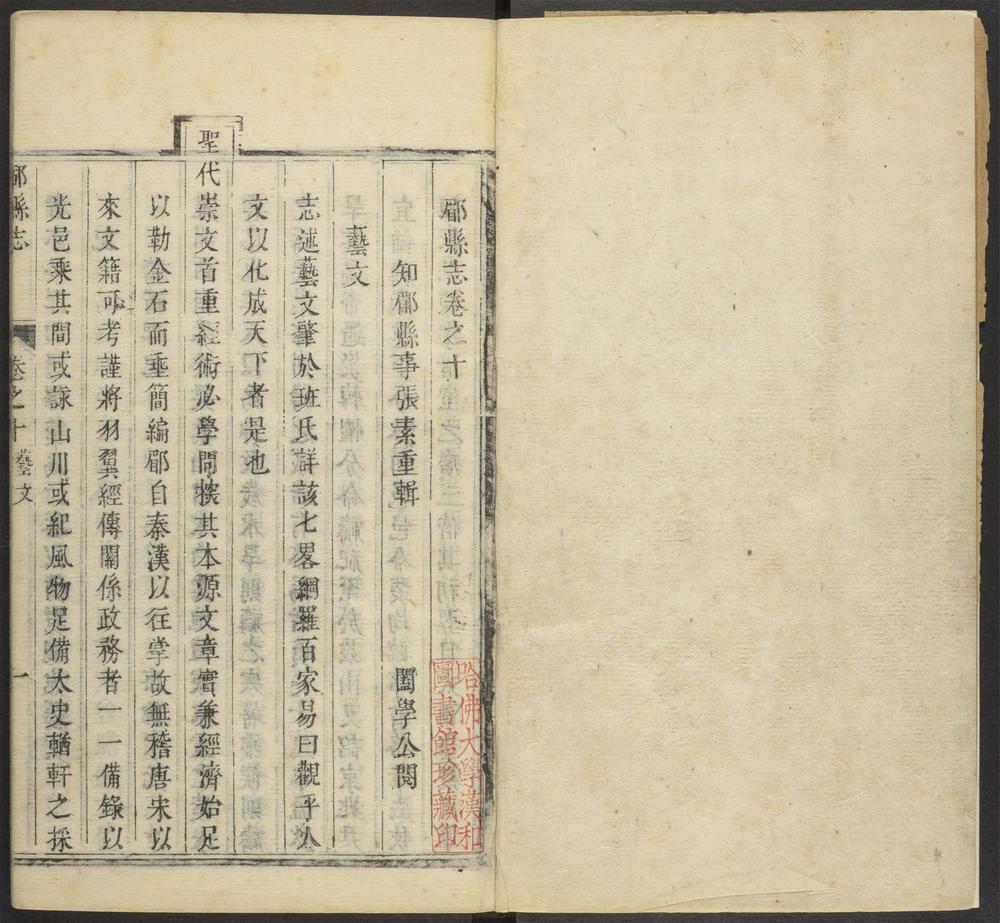 鄜縣志卷之十
知鄜縣事張素重輯 闔學公閱
藝文
志述藝文肇於班氏詳該七畧綱羅百家易曰觀乎人
文以化成天下者是也
聖代崇文首重經術必學問探其本源文章實兼經濟始足
以勒金石而垂簡編鄜自秦漢以往掌故無稽唐宋以
來文籍可考謹將羽翼經傳關係政務者一一備錄以
光邑乘其間或詠山川或紀風物足備太史輶軒之採
縣志
卷之十
藝文
一
哈佛大學漢和
圖書館珍藏印